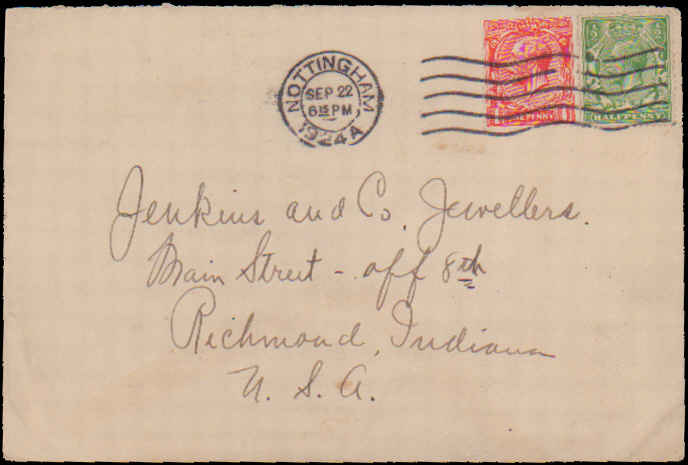 NOTTINGHAM
SEP 22
6 15 PM
1924 A
HALFPENNY
Jenkins and Co. Jewellers.
Main Street - off 8th
Richmond, Indiana
U. S. A.